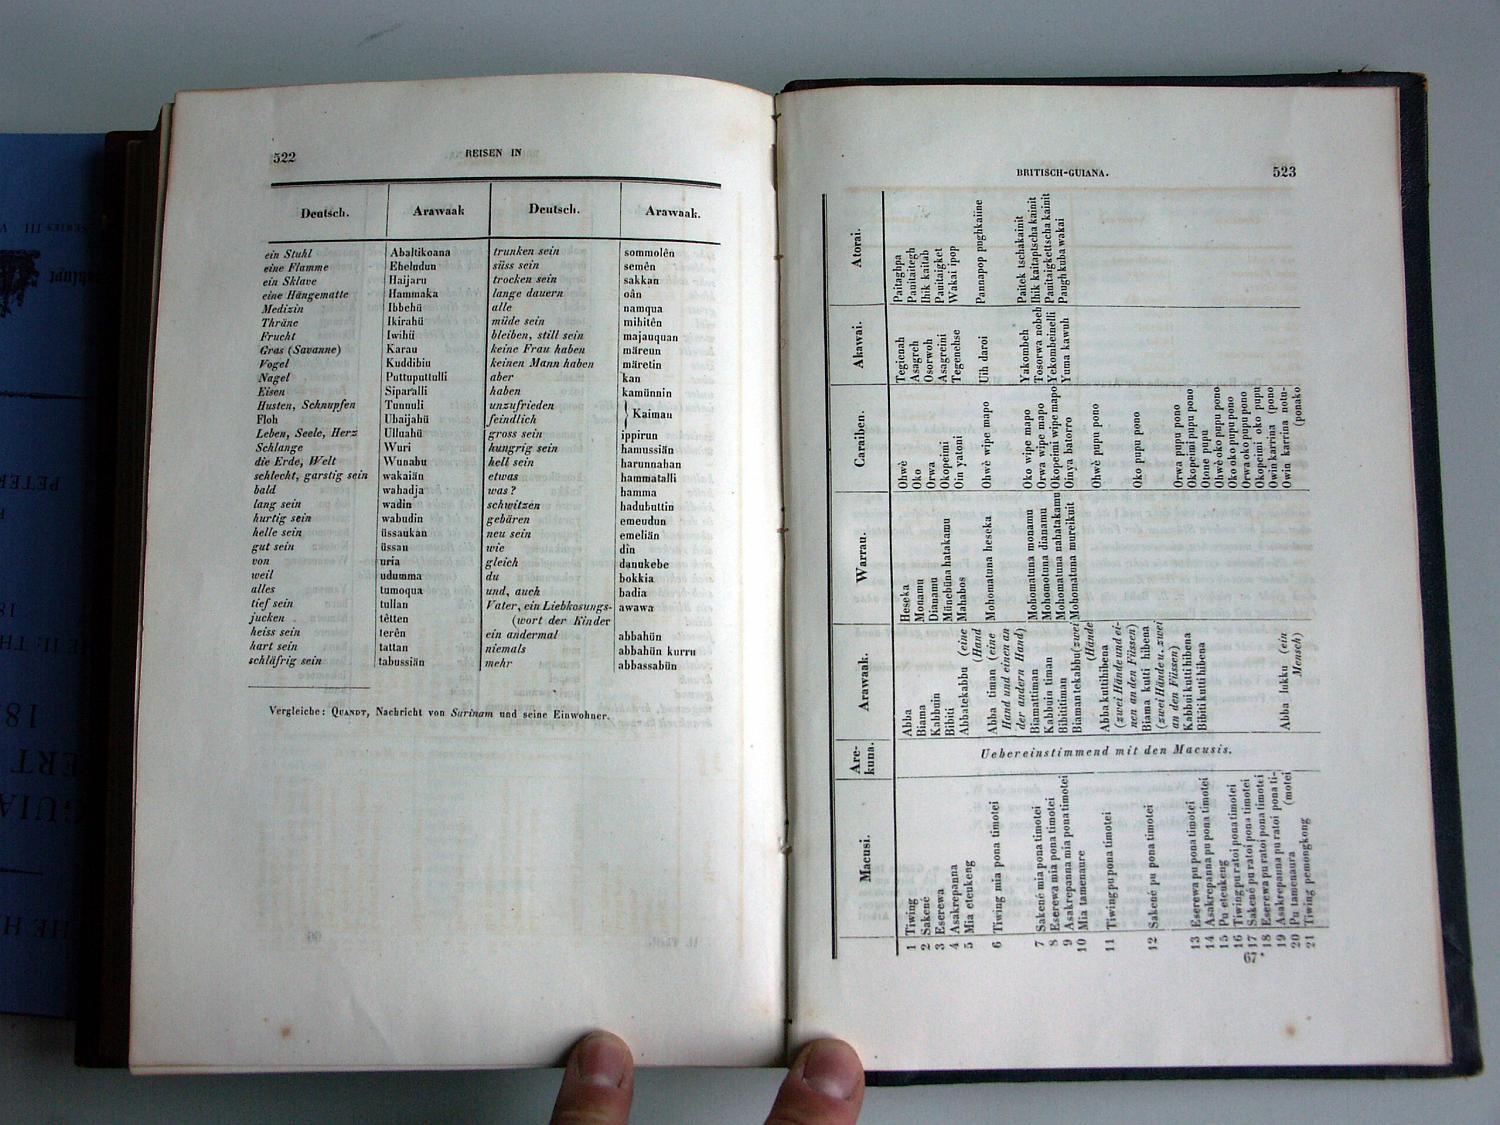 522
REISEN IN
Deutsch. Arawaak Deutsch. Arawaak.
ein Stuhl Abaltikoana trunken sein sommolên
eine Flamme Eheludun süss sein semên
ein Sklave Haijaru trocken sein sakkan
eine Hängematte Hammaka lange dauern oân
Medizin Ibbehü alle namqua
Thräne Ikirahü müde sein mihitên
Frucht Iwihü bleiben, still sein majauquan
Gras (Savanne) Karau keine Frau haben märeun
Vogel Kuddibiu keinen Mann haben märetin
Nagel Puttuputtulli aber kan
Eisen Siparalli haben kamünnin
Husten, Schnupfen Tunuuli unzufrieden
Floh Ubaijahü feindlich } Kaiman
Leben, Seele, Herz Ulluahü gross sein ippirun
Schlange Wuri hungrig sein hamussiän
die Erde, Welt Wunabu hell sein harunnahan
schlecht, garstig sein wakaiän etwas hammatalli
bald wahadja was? hamma
lang sein wadin schwitzen hadubuttin
hurtig sein wabudin gebären emeudun
helle sein üssaukan neu sein emeliän
gut sein üssau wie dîn
von uria gleich danukebe
weil udumma du bokkia
alles tumoqua und, auch badia
tief sein tullan Vater, ein Liebkosungs- awawa
jucken têtten (wort der Kinder
heiss sein terên ein andermal abbahün
hart sein tattan niemals abbahün kurru
schläfrig sein tabussiän mehr abbassabün
Vergleiche: QUANDT, Nachricht von Surinam und seine Einwohner.
BRITISCH-GUIANA.
523
Macusi. Are- Arawaak. Warrau. Caraiben. Akawai. Atorai.
kuna.
Uebereinstimmend mit den Macusis.
1 Tiwing Abba Heseka Ohwè Tegienah Paitaghpa
2 Sakené Biama Monamu Oko Asagreh Pauitaitegh
3 Eserewa Kabbuin Dianamu Orwa Osorwoh Ihik kaitab
4 Asakrepanna Bibiti Münebüna hatakamu Okopeimi Asagreini Pauitaigket
5 Mia eteukeng Abbatekabbu (eine Mahabos Oin yatoni Tegenehse Wakai ipop
(Hand
6 Tiwing mia pona timotei Abba timan (eine Mohomatuna heseka Ohwè wipe mapo Uih daroi Pannapop pughkaiine
Hand und einen an
der andern Hand)
7 Sakené mia pona timotei Biamattiman Mohomatuna monamu Oko wipe mapo Yakombeh Paitek tschakainit
8 Eserewa mia pona timotei Kabbuin timan Mohomotuna dianamu Orwa wipe mapo Tosorwa nobeh Ihik kaitaptscha kainit
9 Asakrepanna mia pona timotei Bibititiman Mohomatuna nahatakamu Okopeimi wipe mapo Yekombeinelli Pauitaigkettscha kainit
10 Mia tamenaure Biamantekabbu (zwei Mohomatuna mureikuit Oinya batorro Yuma kawuh Paugh kuba wakai
(Hände
11 Tiwing pu pona timotei Abba kuttihibena Ohwè pupu pono
(zwei Hände und ei-
nen an den Füssen)
12 Sakené pu pona timotei Biama kutti hibena Oko pupu pono
(zwei Hände u. zwei
an den Füssen)
13 Eserewa pu pona timotei Kabbui kutti hibena Orwa pupu pono
14 Asakrepanna pu pona timotei Bibiti kutti hibena Okopeimi pupu pono
15 Pu eteukeng Otune pupu
16 Tiwing pu ratoi pona timotei Ohwè oko pupu pono
17 Sakené pu ratoi pona timotei Oko oko pupu pono
18 Eserewa pu ratoi pona timotei Orwa oko pupu pono
19 Asakrepanna pu ratoi pona ti- Okopeimi oko pupu
(motei (pono
20 Pu tamenaura Abba lukku (ein Owin karrina
Mensch)
21 Tiwing pemongkong Owin karrina notu-
(ponako
67*